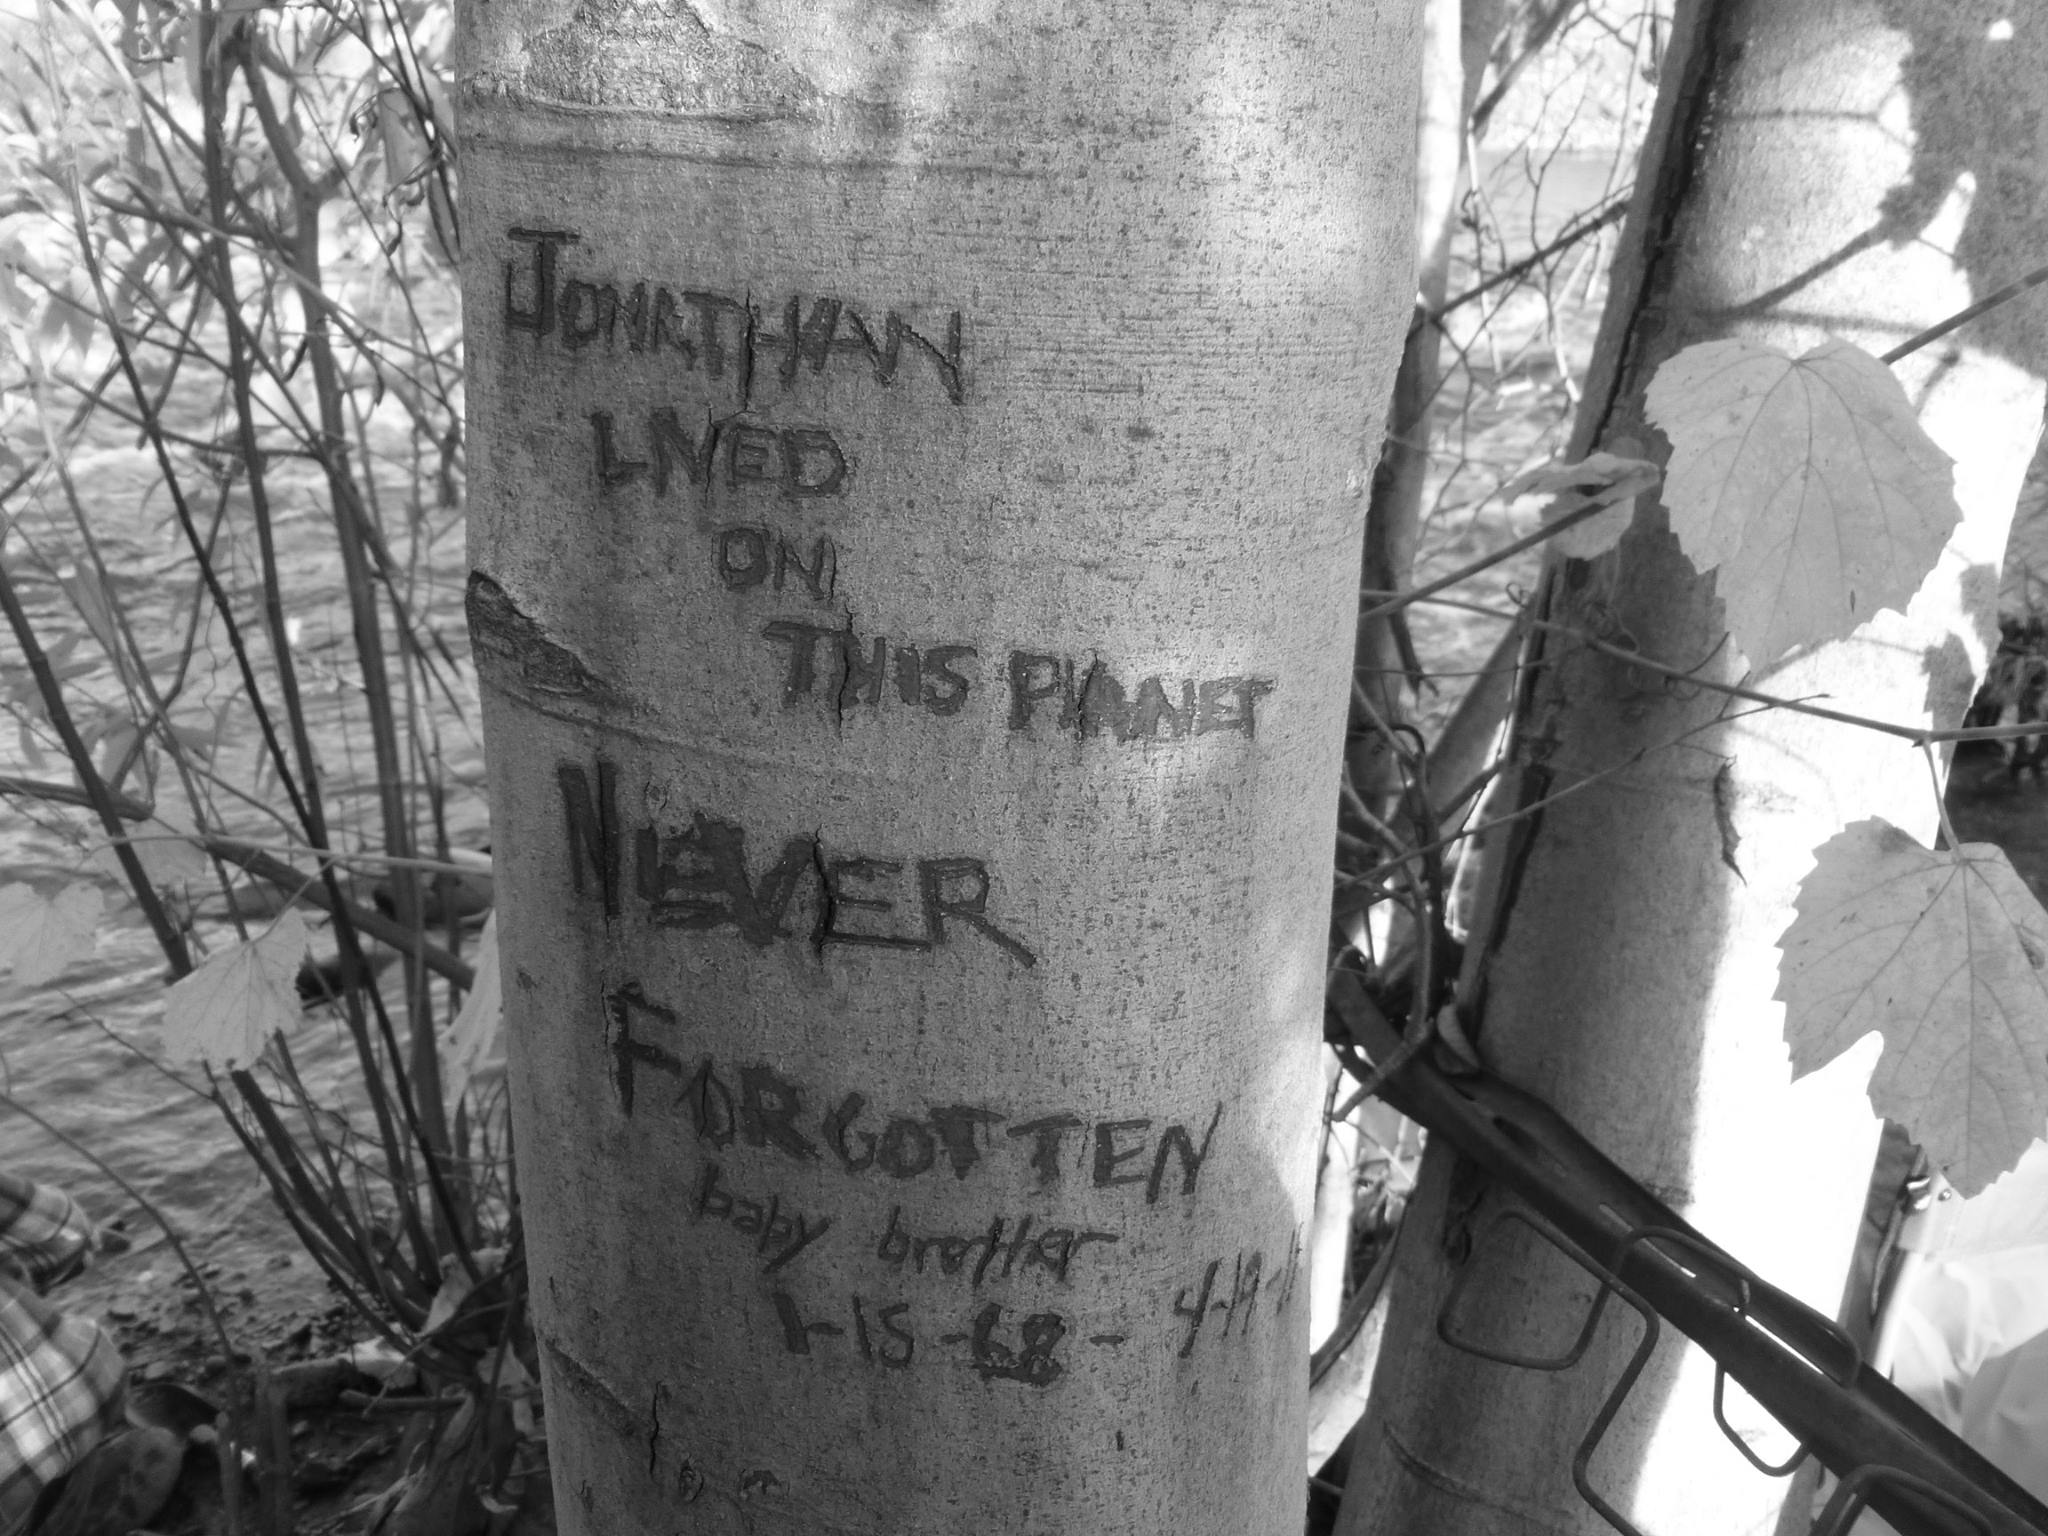 JONATHAN
LIVED
ON
THIS PLANET
NEVER
FORGOTTEN
baby brother
1-15-68 - 4-19-